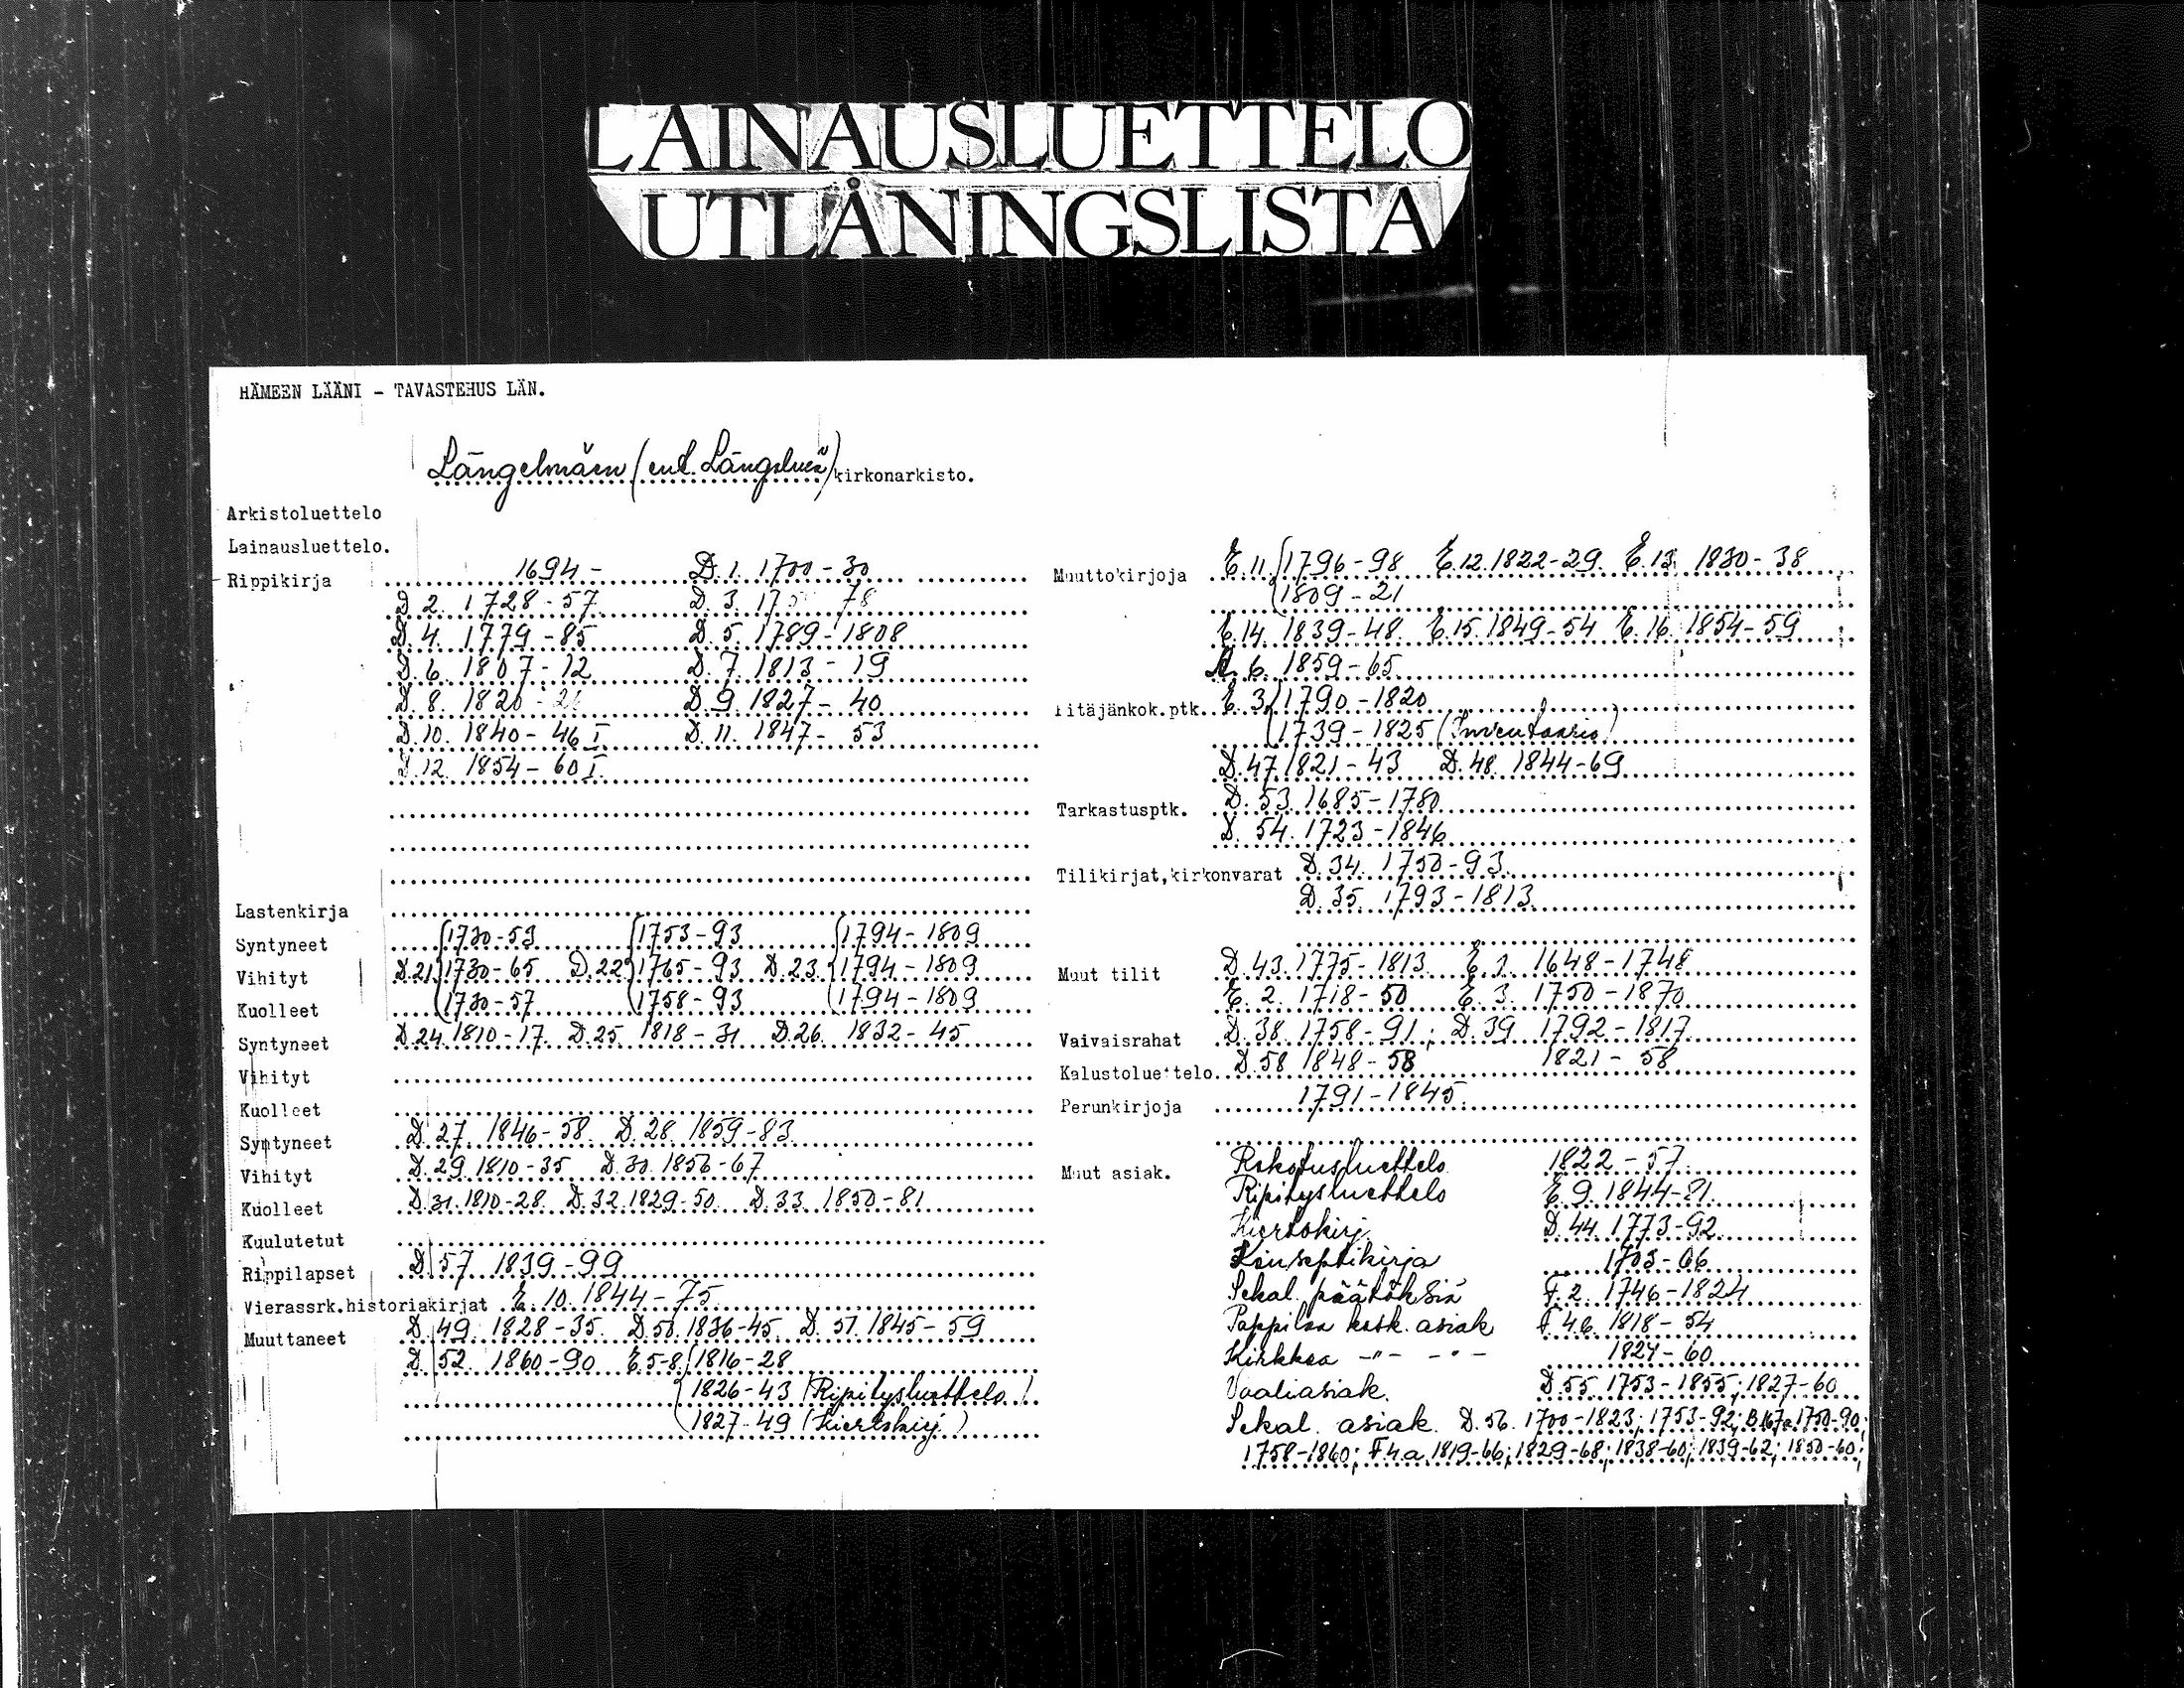 LAINAUSLUETTELO
UTLÅNINGSLISTA
HÄMEEN LÄÄNI - TAVASTEHUS LÄN.
Längelmäen (ent. Längelmä) kirkonarkisto.
Arkistoluettelo
Lainausluettelo.
Rippikirja 1694 - D. 1. 1700 - 30
D. 2. 1728 - 57 D. 3. 78
D. 4. 1779 - 85 D. 5. 1789 - 1808
D. 6. 1807 - 12 D. 7. 1813 - 19
D. 8. 1820 - D. 9. 1827 - 40
D. 10. 1840 - 46 I D. 11. 1847 - 53
D. 12. 1854 - 60 I
Lastenkirja
Syntyneet 1730-53 1753-93 1794-1809
Vihityt D.21. 1730-65 D.22. 1765-93 D.23. 1794-1809
Kuolleet 1730-57 1758-93 1794-1809
Syntyneet D.24. 1810-17. D.25. 1818-31 D.26. 1832-45
Vihityt
Kuolleet
Syntyneet D. 27. 1846-58. D. 28. 1859-83
Vihityt D. 29. 1810-35 D. 30. 1856-67
Kuolleet D. 31. 1810-28. D. 32. 1829-50. D. 33. 1850-81
Kuulutetut
Rippilapset D. 57 1839-99
Vierassrk.historiakirjat E. 10. 1844-75
Muuttaneet D. 49. 1828-35. D. 50. 1836-45 D. 51. 1845-59
D. 52. 1860-90 E. 5-8. 1816-28
1826-43 (Ripitysluettelo)
1827-49 (Kiertokirj.)
Muuttokirjoja E. 11. 1796-98 E. 12. 1822-29. E. 13. 1830-38
1809-21
E. 14. 1839-48. E. 15. 1849-54 E. 16. 1854-59
6. 1859-65
Pitäjänkok.ptk. E. 3. 1790-1820
1739-1825 (Inventaario)
D. 47. 1821-43 D. 48. 1844-69
Tarkastusptk. D. 53. 1685-1780
D. 54. 1723-1846
Tilikirjat,kirkonvarat D. 34. 1750-93
D. 35. 1793-1813
Muut tilit D. 43. 1775-1813. E. 1. 1648-1748
E. 2. 1718-50 E. 3. 1750-1870
Vaivaisrahat D. 38. 1758-91; D. 39. 1792-1817
Kalustoluettelo. D. 58 1848-58 1821-58
Perunkirjoja 1791-1845.
Muut asiak. Rokotusluettelo 1822-57
Ripitysluettelo E. 9. 1844-81.
Kiertokirj. D. 44. 1773-92
Konseptikirja 1703-66
Sekal. päätöksiä F. 2. 1746-1824
Pappilaa kosk. asiak. F. 4b. 1818-54
Kirkkoa -"- -"- 1824-60
Vaaliasiak. D. 55 1753-1855; 1827-60
Sekal. asiak. D. 56. 1700-1823; 1753-92; B.167a 1750-90;
1758-1860; F. 4.a. 1819-66; 1829-68; 1838-60; 1839-62; 1850-60;